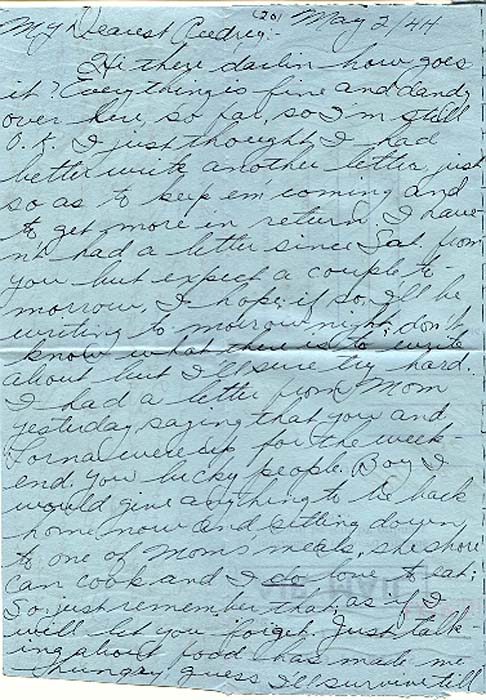 (20) May 2/44
My Dearest Audrey:-
Hi there darlin how goes
it? Everything is fine and dandy
over here so far, so I'm still
O.K. I just thought I had
better write another letter just
so as to keep em' coming and
to get more in return. I have-
nt had a letter since Sat. from
you but expect a couple to-
morrow, I hope; if so, I'll be
writing to morrow night, don't
know what there is to write
about but I'll sure try hard.
I had a letter from Mom
yesterday, saying that you and
Lorna were up for the week-
end. You lucky people. Boy I
would give anything to be back
home now and sitting down
to one of Moms meals, she shore
can cook and I do love to eat;
So just remember that, as if I
will let you forget. Just talk-
ing about food has made me
hungry, guess I'll survive till